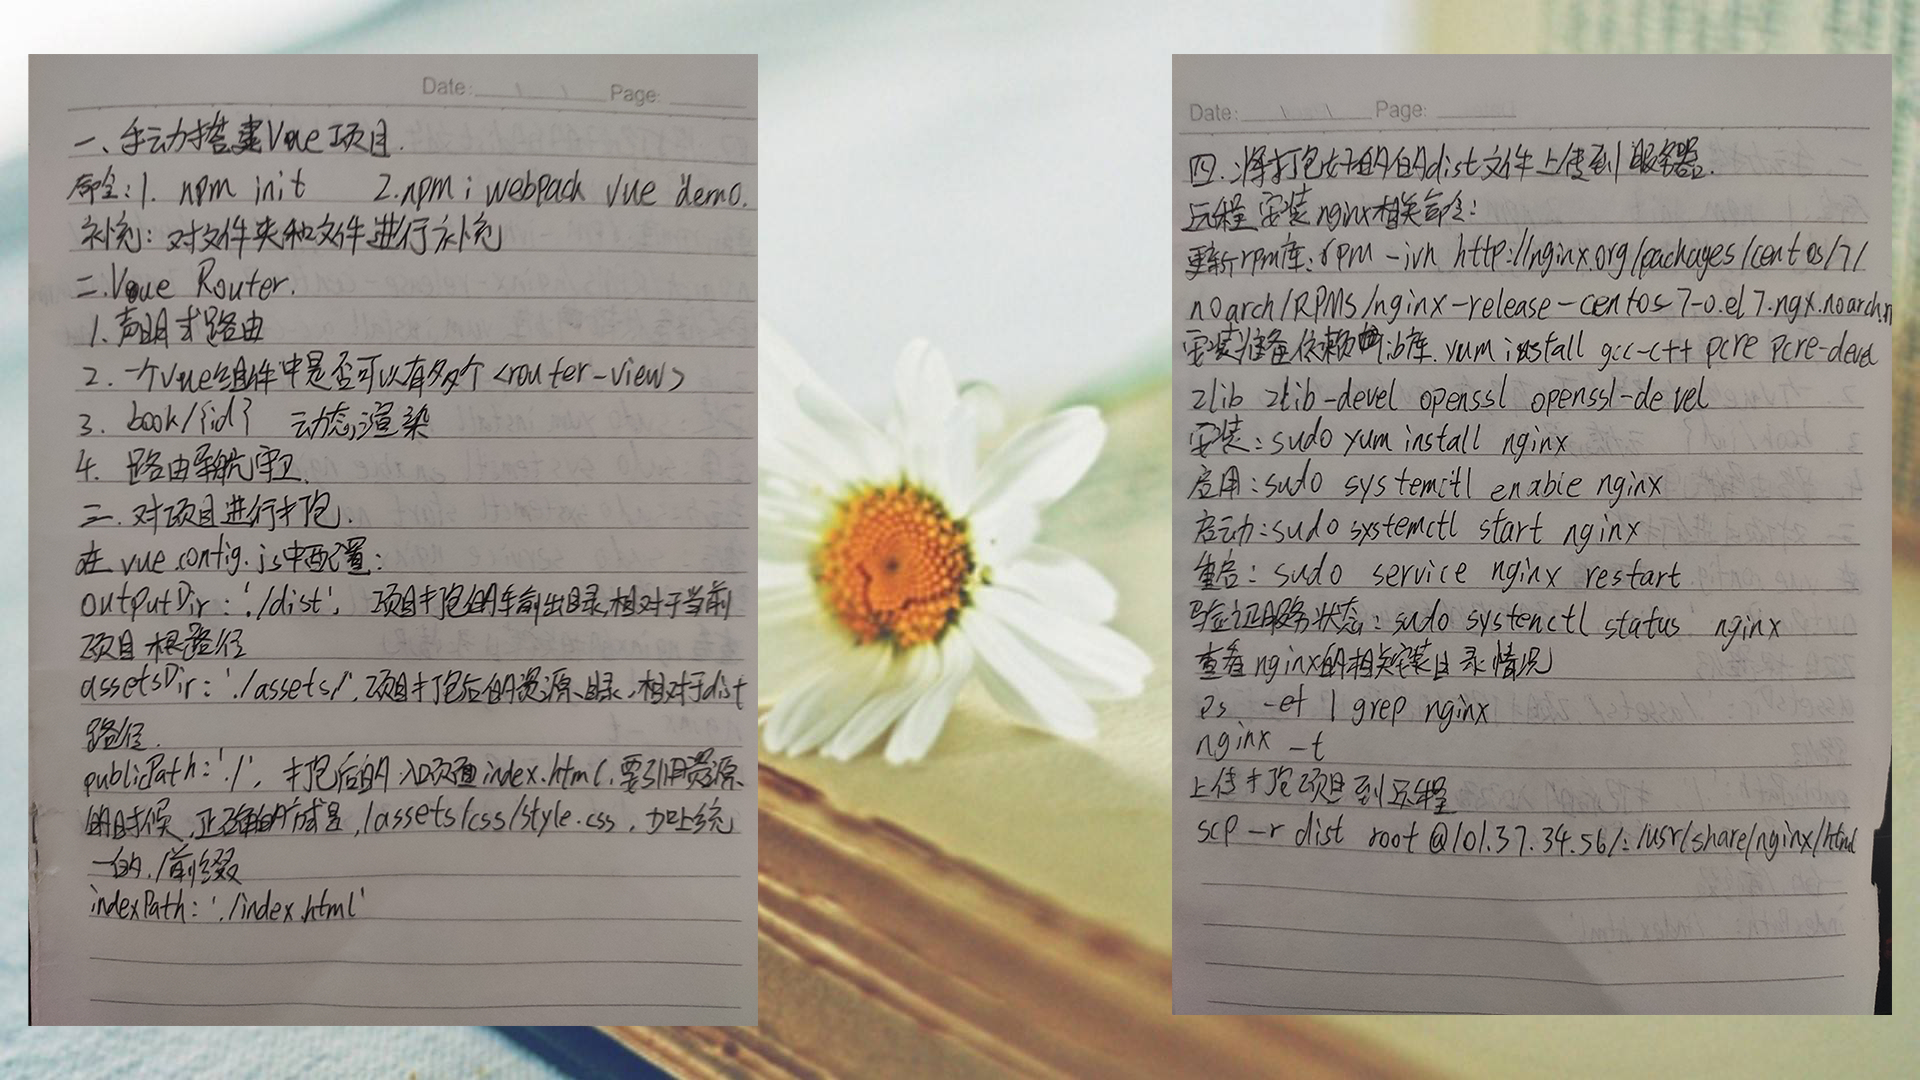 Date: / / Page:
一、手动搭建Vue项目.
命令:1. npm init 2.npm i webpack vue demo.
补充:对文件夹和文件进行补充
二.Vue Router.
1.声明式路由
2.一个vue组件中是否可以有多个<router-view>
3. book/{id} 动态渲染
4. 路由导航守卫.
三.对项目进行打包.
在 vue.config.js中配置:
outputDir:'./dist', 项目打包的输出目录,相对于当前
项目根路径
assetsDir:'./assets/',项目打包后的资源目录,相对于dist
路径.
publicPath:'./', 打包后的入口页面index.html,要引用资源
的时候,正确的方式是,/assets/css/style.css,加上统
一的./前缀
indexPath:'./index.html'
Date: / / Page:
四.将打包好的的dist文件上传到服务器.
远程安装nginx相关命令:
更新rpm库:rpm -ivh http://nginx.org/packages/centos/7/
noarch/RPMS/nginx-release-centos-7-0.el7.ngx.noarch.r
安装准备依赖库.yum install gcc-c++ pcre pcre-devel
zlib zlib-devel openssl openssl-devel
安装:sudo yum install nginx
启用:sudo systemctl enable nginx
启动:sudo systemctl start nginx
重启:sudo service nginx restart
验证服务状态:sudo systemctl status nginx
查看nginx的相关安装目录情况
ps -ef | grep nginx
nginx -t
上传打包项目到远程
scp -r dist root@101.37.34.56/:/usr/share/nginx/html